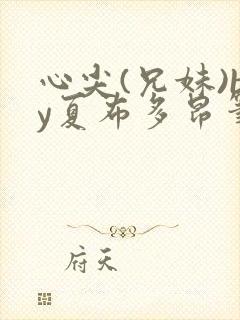 心尖(兄妹)b
y夏布多昂笔
府天